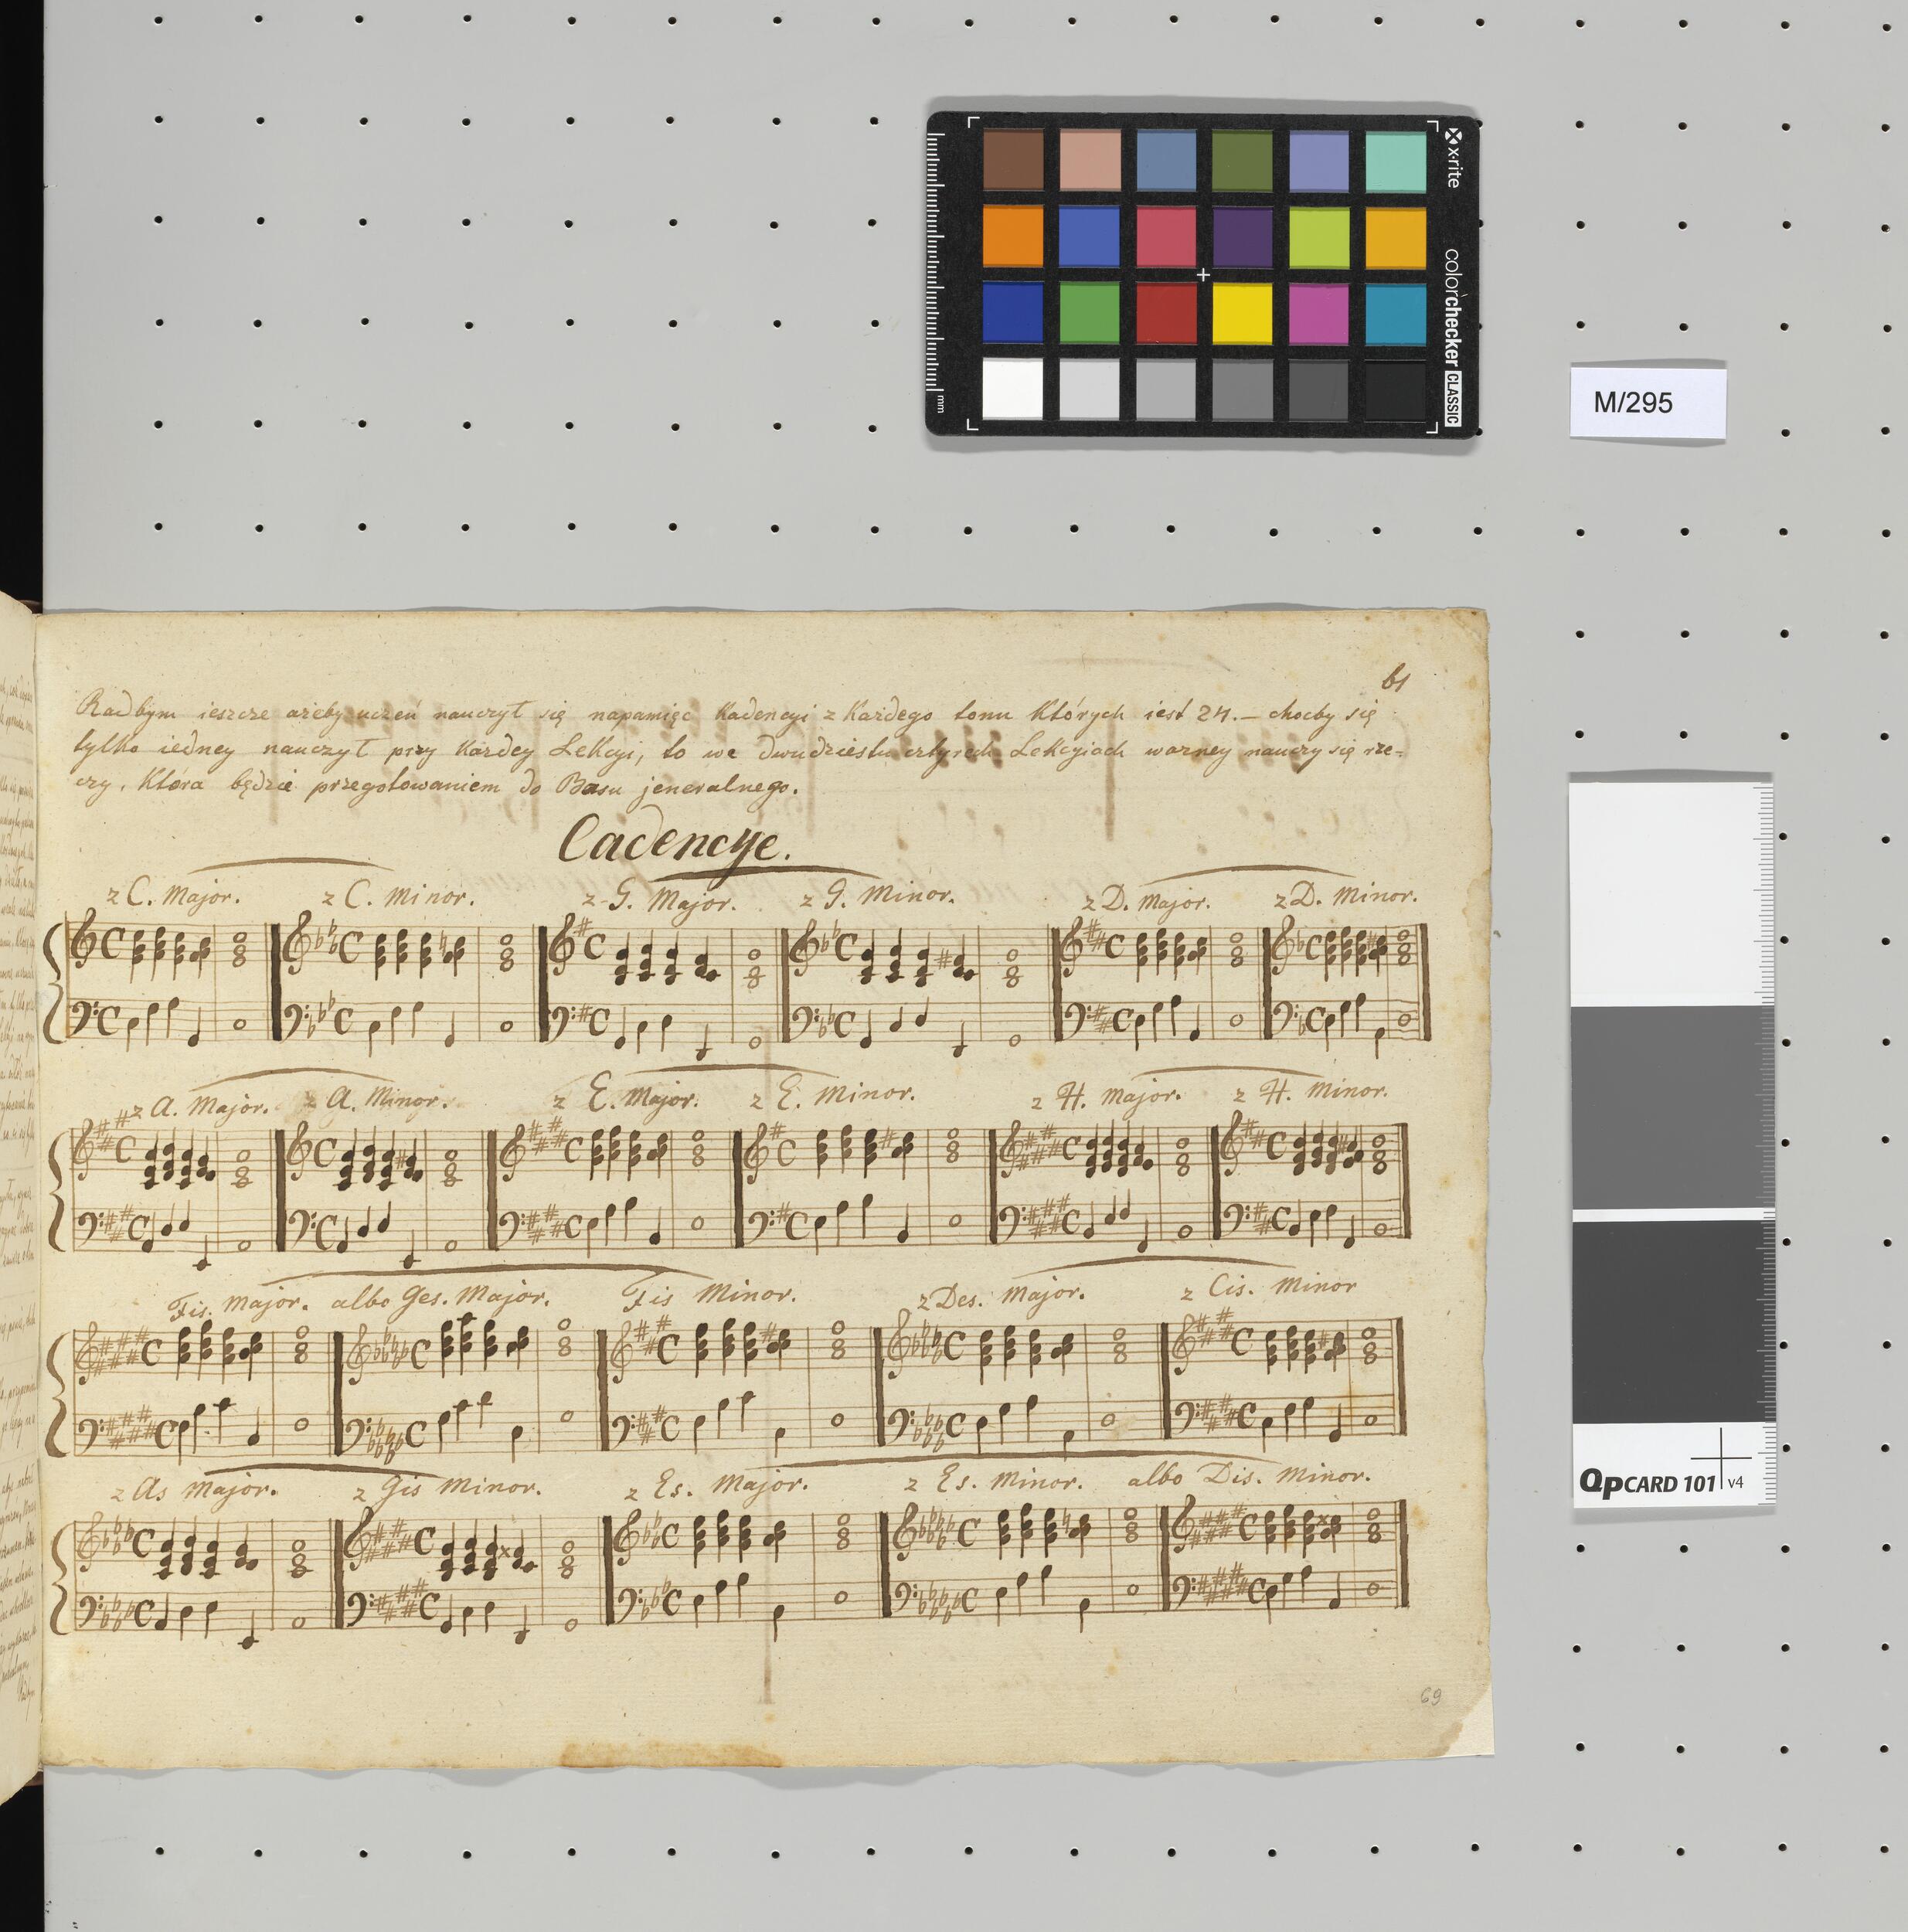 x-rite
colorchecker CLASSIC
mm
M/295
61
Radbym ieszcze ażeby uczeń nauczył się napamięć Kadencyi z Każdego tonu Których iest 24. – choćby się
tylko iedney nauczył przy Każdey Lekcyi, to we dwudziestu cztyrech Lekcyiach ważney nauczy się rze=
czy, Która będzie przegotowaniem do Basu jeneralnego.
Cadencye.
z C. Major. z C. Minor. z G. Major. z G. Minor. z D. Major. z D. Minor.
z A. Major. z A. Minor. z E. Major. z E. Minor. z H. Major. z H. Minor.
Fis. Major. albo Ges. Major. Fis Minor. z Des. Major. z Cis. Minor
z As Major. z Gis Minor. z Es. Major. z Es. Minor. albo Dis. Minor.
69
QPCARD 101 v4